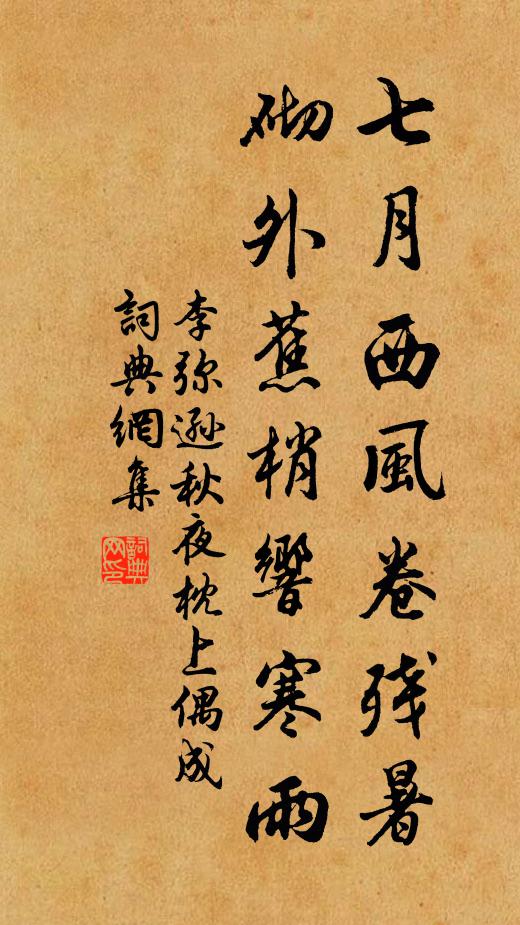 七月西風卷残暑
砌外蕉梢響寒雨
李弥遜秋夜枕上偶成
詞典網集
詞典網印